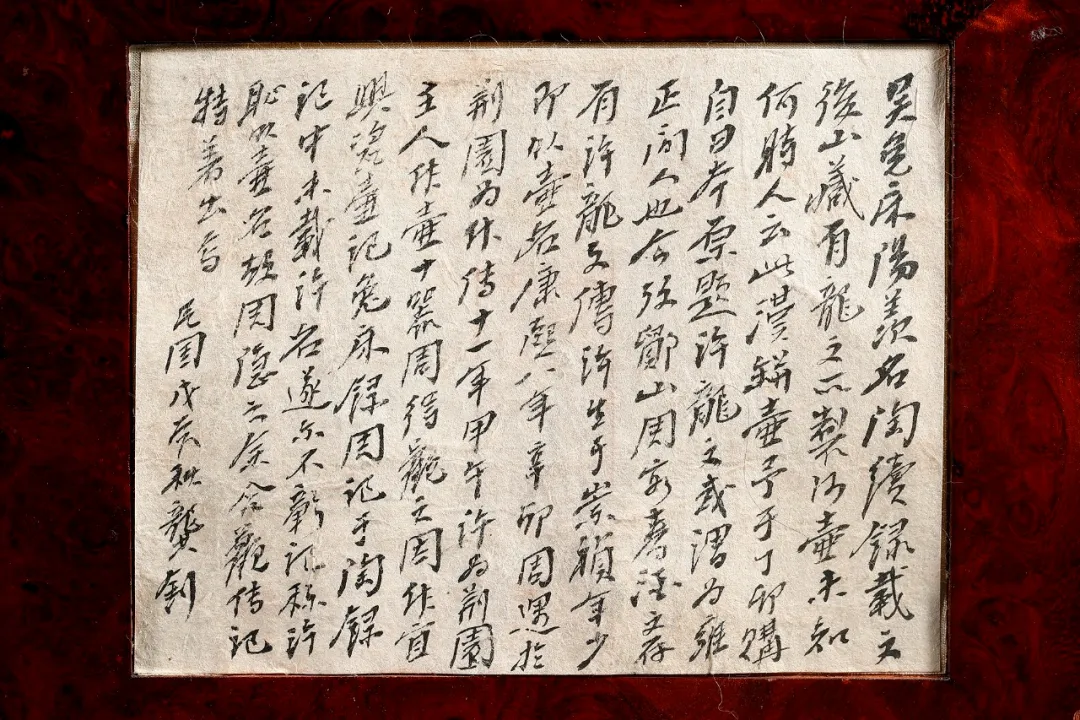 吳兔床陽羨名陶續錄載之
後山臧有龍文所製沙壺未知
何時人云此漢鉼壺予于丁卯購
自日本原題許龍文或謂為雍
正間人也今攷鄮山周容春酒堂存
有許龍文傳許生于崇禎年少
即以壺名康熙八年辛卯周遇於
荆園為作傳十一年甲午許為荆園
主人作壺十器周得觀之周作宜
興瓷壺記兔床錄周記于陶錄
記中未載許名遂亦不彰記稱許
恥以壺名故周隱之余合觀傳記
特著出焉
民國戊辰秋龔釗